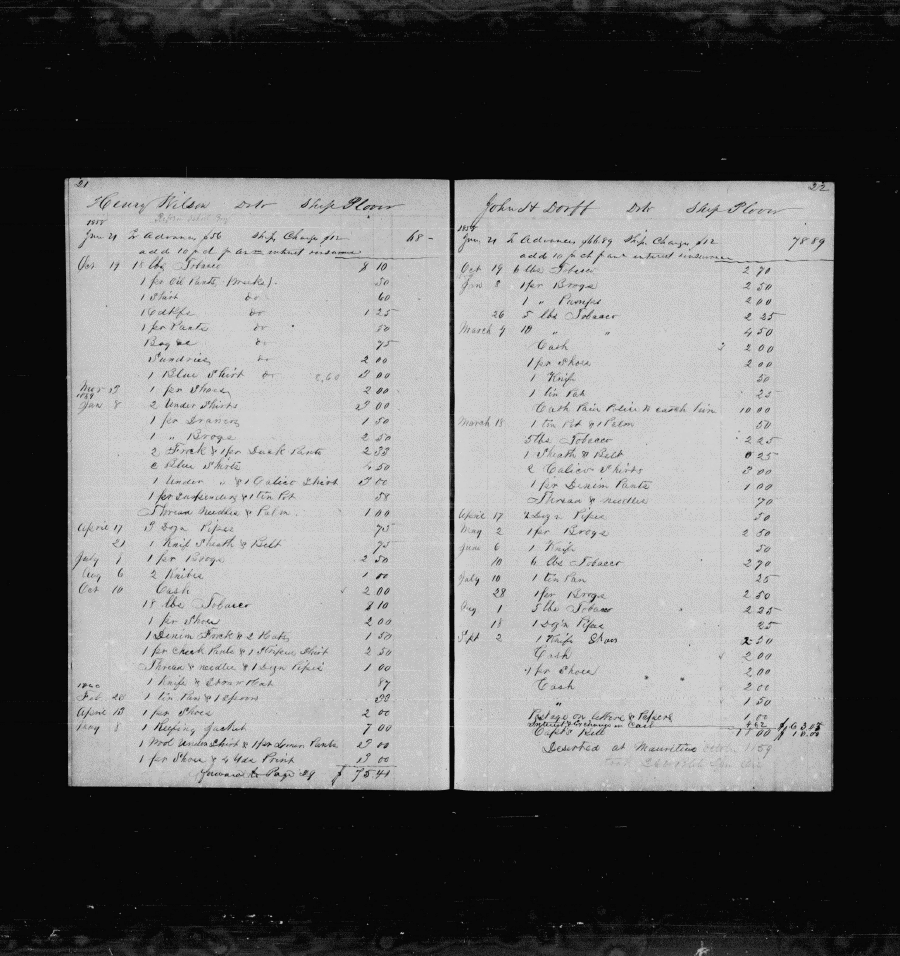 21
Henry Wilson Dr to Ship Plover
1858
Jun 21 To Advances $56 Ship Charges $12 68 -
add 10 p ct p an = interest insurance
Oct 19 18 lbs Tobacco 8 10
1 pr Oil Pants (Breeches) 50
1 Shirt do 60
1 25
1 pr Pants do 50
do 75
Sundries do 2 00
1 Blue Shirt do 3 00
13 1 pr Shoes 2 00
1859
Jan 8 2 Under Shirts 3 00
1 pr Drawers 1 50
1 " Brogs 2 50
2 Frock & 1 pr Duck Pants 2 33
Blue Shirts 4 50
1 Under " & 1 Calico Shirt 3 00
1 pr Suspenders & 1 tin Pot 58
Thread Needles & Palm 1 00
April 17 3 Dozn Pipes 75
21 1 Knife Sheath & Belt 75
July 1 1 pr Brogs 2 50
Aug 6 2 Knives 1 00
Oct 10 Cash 2 00
18 lbs Tobacco 8 10
1 pr Shoes 2 00
1 Denim Frock & 2 Hats 1 50
1 pr Check Pants & 1 Striped Shirt 2 50
Thread & needles & 1 Dozn Pipes 1 00
1860 1 Knife & Straw Hat 87
Feb 20 1 tin Pan & 1 Spoon
April 13 1 pr Shoes 2 00
8 1 Reefing Jacket 7 00
1 Wool Under Shirt & 1 pr Linen Pants 3 00
1 pr Shoes & 4 Yds Print 3 00
Forward to Page 28 $ 75 41
22
John H Dorff Dr to Ship Plover
1858
Jun 21 To Advances $66 89 Ship Charges $12 78 89
add 10 p ct p an = interest insurance
Oct 19 6 lbs Tobacco 2 70
Jan 8 1 pr Brogs 2 50
1 " Pumps 2 00
26 5 lbs Tobacco 2 25
March 4 10 " " 4 50
Cash 2 00
1 pr Shoes 2 00
1 Knife 50
1 tin Pot 25
Cash Paid Police to catch him 10 00
March 18 1 tin Pot & 1 Palm 50
5 lbs Tobacco 2 25
1 Sheath & Belt 25
2 Calico Shirts 3 00
1 pr Denim Pants 1 00
Thread & needles 70
April 17 2 Dozn Pipes 50
May 2 1 pr Brogs 2 50
June 6 1 Knife 50
10 6 lbs Tobacco 2 70
July 10 1 tin Pan 25
28 1 pr Brogs 2 50
Aug 1 5 lbs Tobacco 2 25
18 1 Dozn Pipes 25
Sept 2 1 Knife Shoes 2 50
Cash 2 00
1 pr Shoes 2 00
Cash 2 00
" 1 50
Postage on letters & Papers 1 00
Interest & Exchange on Cash 4 62 $ 63
Capts Bill 10 00 $ 10 00
Deserted at Mauritius 1859